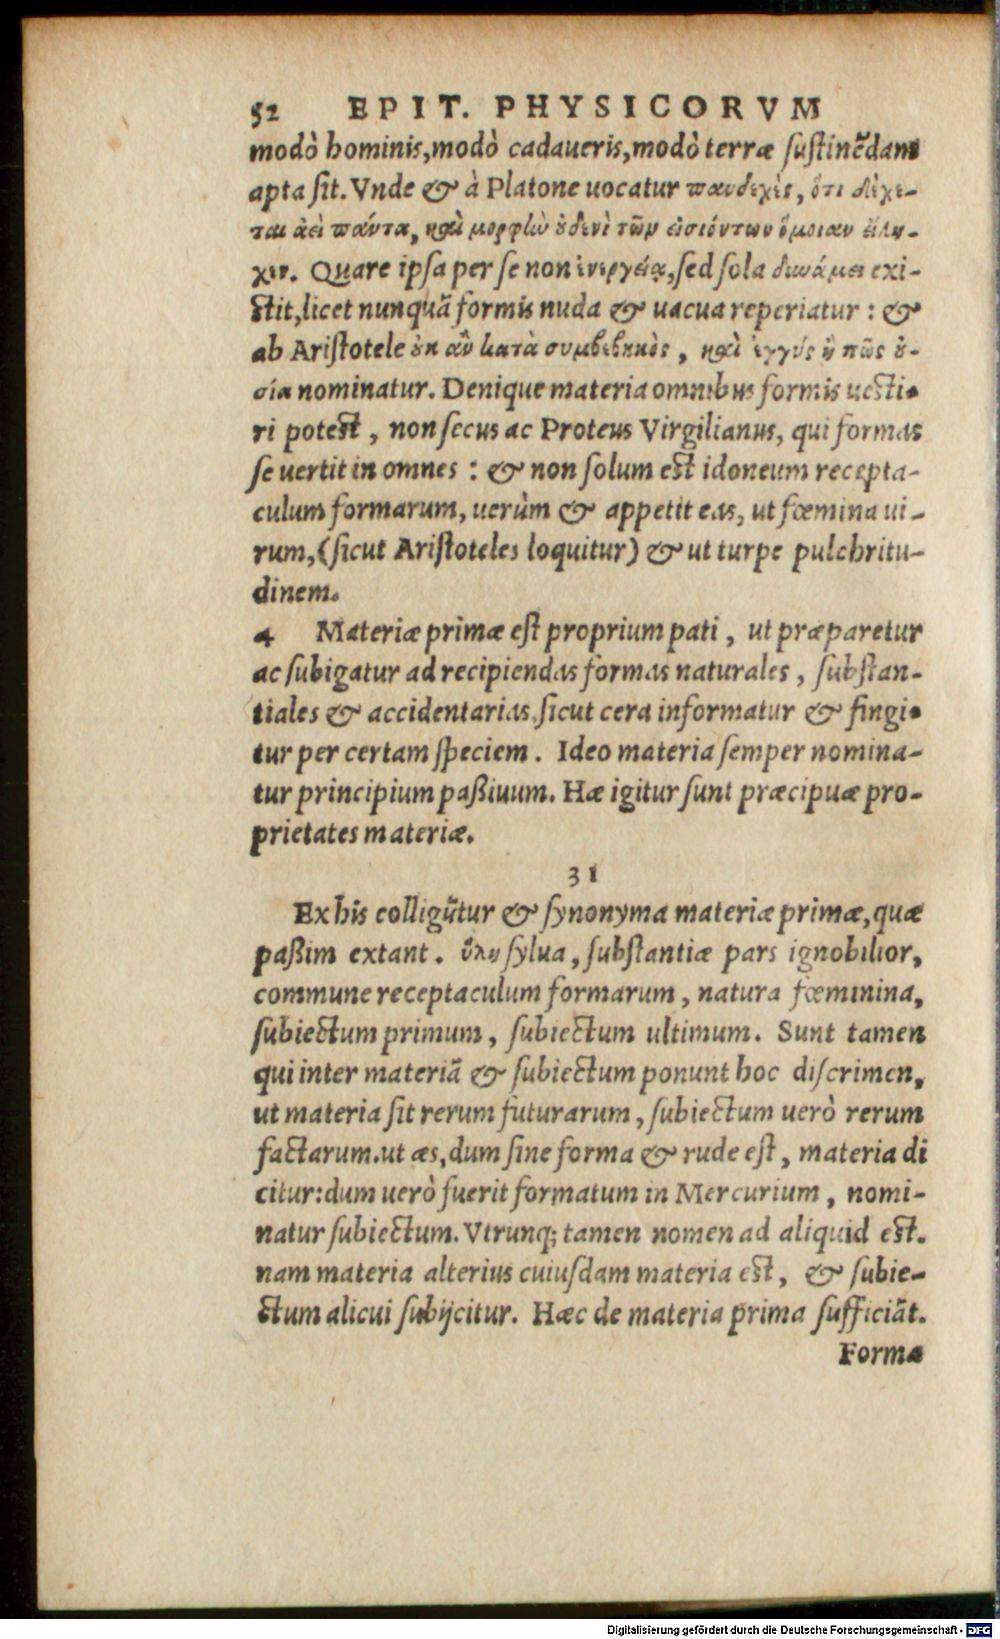 52 EPIT. PHYSICORVM
modò hominis, modò cadaueris, modò terræ ſuſtinẽdam
apta ſit. Vnde & à Platone uocatur πανδεχὲς, ὅτι δέχε-
ται ἀεὶ πάντα, καὶ μορφὴν ὀδενὶ τῶν εἰσιόντων ὅμοιαν εἴλη-
χεν. Quare ipſa per ſe non ἐνεργείᾳ, ſed ſola δυνάμει exi-
ſtit, licet nunquã formis nuda & uacua reperiatur : &
ab Ariſtotele ȣ̓κ ἂν κατὰ συμβεβηκὸς, καὶ ἐγγύς ἢ πῶς ȣ̓-
σία nominatur. Denique materia omnibus formis ueſti-
ri poteſt, non ſecus ac Proteus Virgilianus, qui formas
ſe uertit in omnes : & non ſolum eſt idoneum recepta-
culum formarum, uerùm & appetit eas, ut fœmina ui-
rum, (ſicut Ariſtoteles loquitur) & ut turpe pulchritu-
dinem.
4 Materiæ primæ eſt proprium pati, ut præparetur
ac ſubigatur ad recipiendas formas naturales, ſubſtan-
tiales & accidentarias, ſicut cera informatur & fingi-
tur per certam ſpeciem. Ideo materia ſemper nomina-
tur principium paßiuum. Hæ igitur ſunt præcipuæ pro-
prietates materiæ.
31
Ex his colligũtur & ſynonyma materiæ primæ, quæ
paßim extant. ὕλη ſylua, ſubſtantiæ pars ignobilior,
commune receptaculum formarum, natura fœminina,
ſubiectum primum, ſubiectum ultimum. Sunt tamen
qui inter materiã & ſubiectum ponunt hoc diſcrimen,
ut materia ſit rerum futurarum, ſubiectum uerò rerum
factarum. ut æs, dum ſine forma & rude eſt, materia di
citur: dum uerò fuerit formatum in Mercurium, nomi-
natur ſubiectum. Vtrunq; tamen nomen ad aliquid eſt.
nam materia alterius cuiuſdam materia eſt, & ſubie-
ctum alicui ſubijcitur. Hæc de materia prima ſufficiãt.
Forma
Digitalisierung gefördert durch die Deutsche Forschungsgemeinschaft - DFG